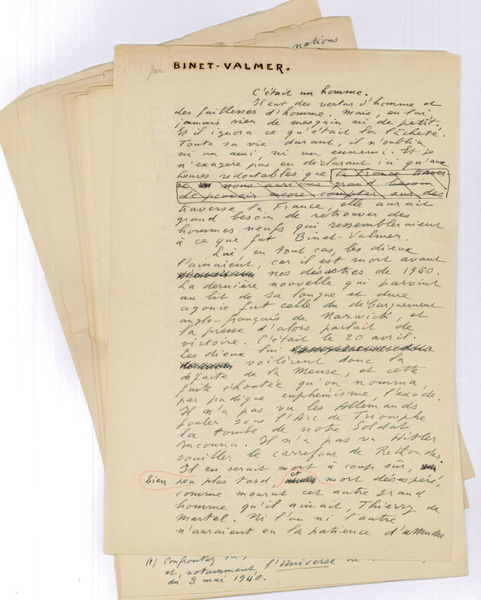 nations
BINET-VALMER.
C'était un homme.
Il eut des vertus d'homme et
des faiblesses d'homme. Mais, en lui,
jamais rien de mesquin ni de petit,
Et il ignora ce qu'était la lâcheté.
Toute sa vie durant, il n'oublia
ni un ami, ni un ennemi. Et je
n'exagère pas en déclarant ici qu'aux
heures redoutables que la France traver
se nous aurions grand besoin
de pouvoir encore compter sur des
traverse la France, elle aurait
grand besoin de retrouver des
hommes neufs qui ressembleraient
à ce que fut Binet-Valmer.
Lui, en tout cas, les dieux
l'aimaient, car il est mort avant
nos désastres de 1940.
La dernière nouvelle qui parvint
au lit de sa longue et dure
agonie fut celle du débarquement
anglo-français de Narwick, et
la presse d'alors parlait de
victoire. C'était le 20 avril.
Les dieux lui
voilèrent donc la
défaite de la Meuse, et cette
fuite éhontée qu'on nomma,
par pudique euphémisme, l'exode.
Il n'a pas vu les Allemands
fouler sous l'Arc de Triomphe
la tombe de notre Soldat
Inconnu. Il n'a pas vu Hitler
souiller le carrefour de Rethondes.
Il en serait mort à coup sûr,
bien peu plus tard, et mort désespéré,
comme mourut cet autre grand
homme qu'il aimait, Thierry de
Martel. Ni l'un ni l'autre
n'auraient eu la patience d'attendre
(1) Confrontez
et, notamment, l'Univers
du 3 mai 1940.